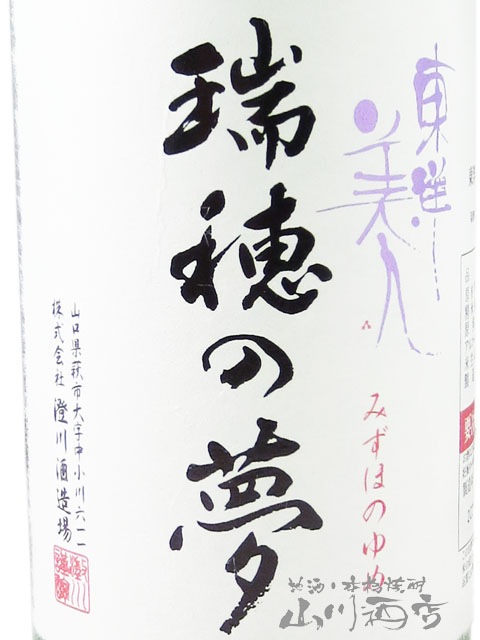 東洋美人
瑞穂の夢
みずほのゆめ
山口県萩市大字中小川六一一
株式会社 澄川酒造場
地酒・本格焼酎
山川酒店